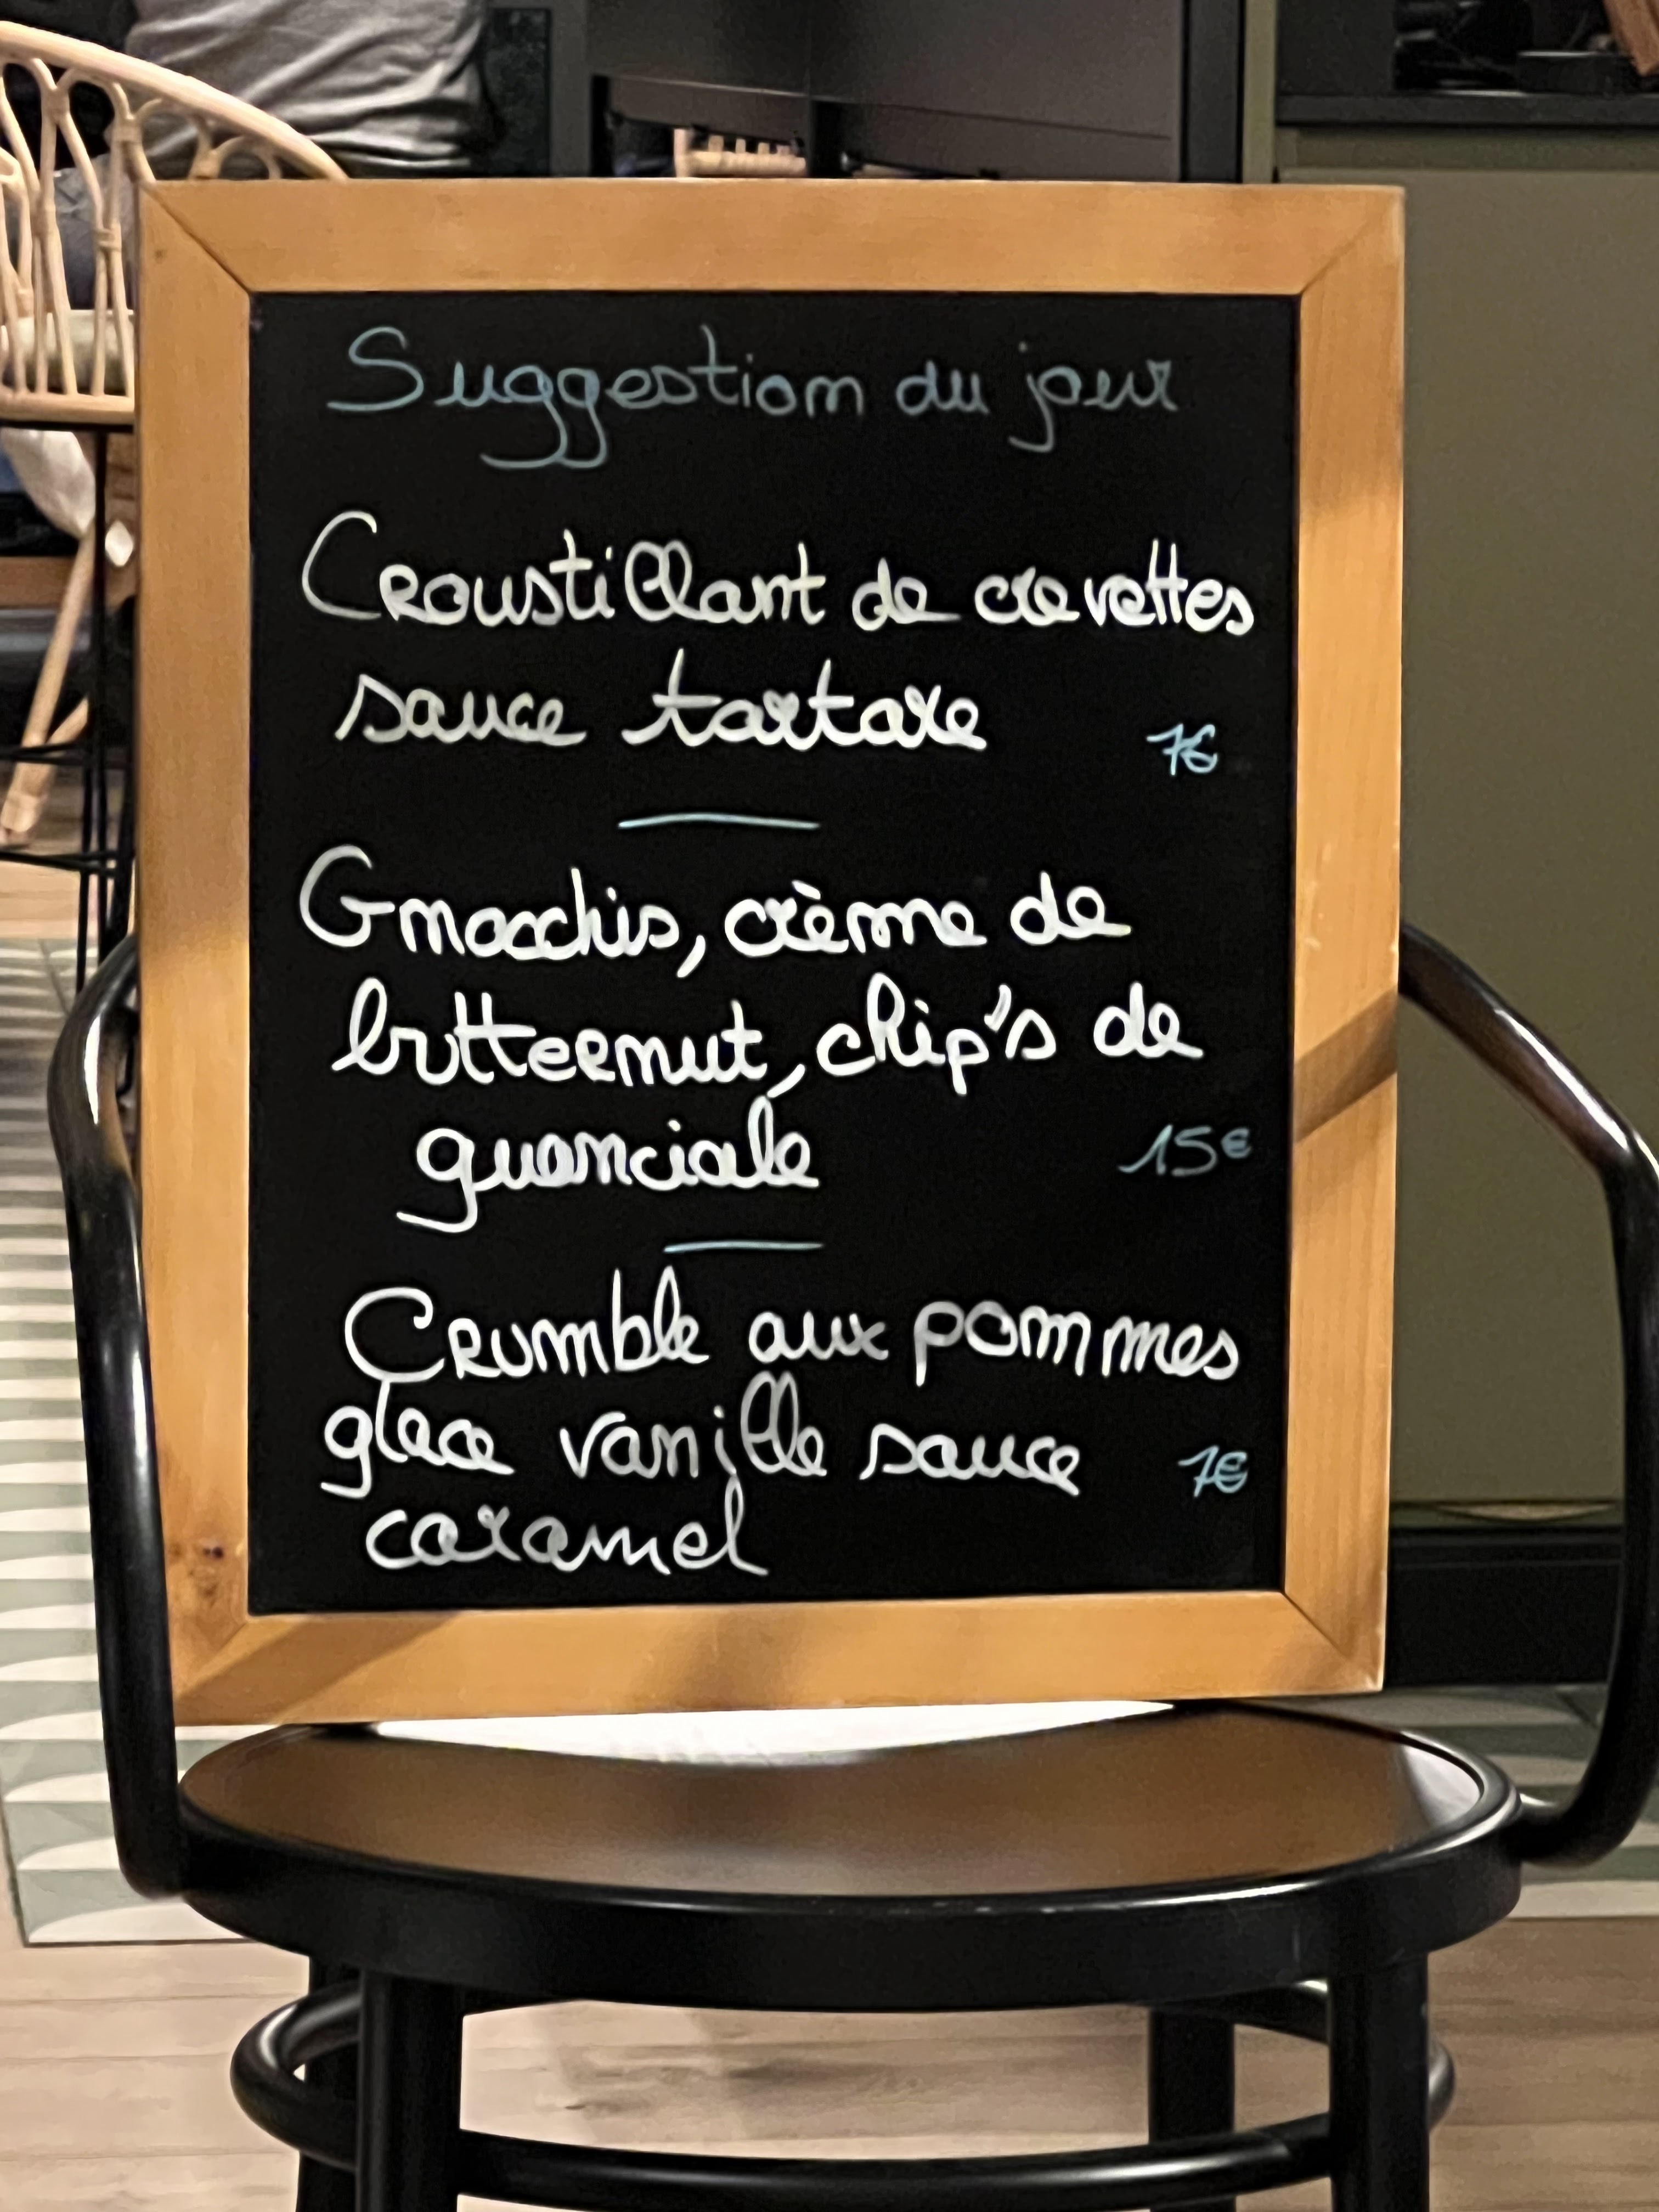 Suggestion du jour
Croustillant de crevettes
sauce tartare
7€
Gnocchis, crème de
butternut, chip's de
guanciale
15€
Crumble aux pommes
glace vanille sauce
7€
caramel